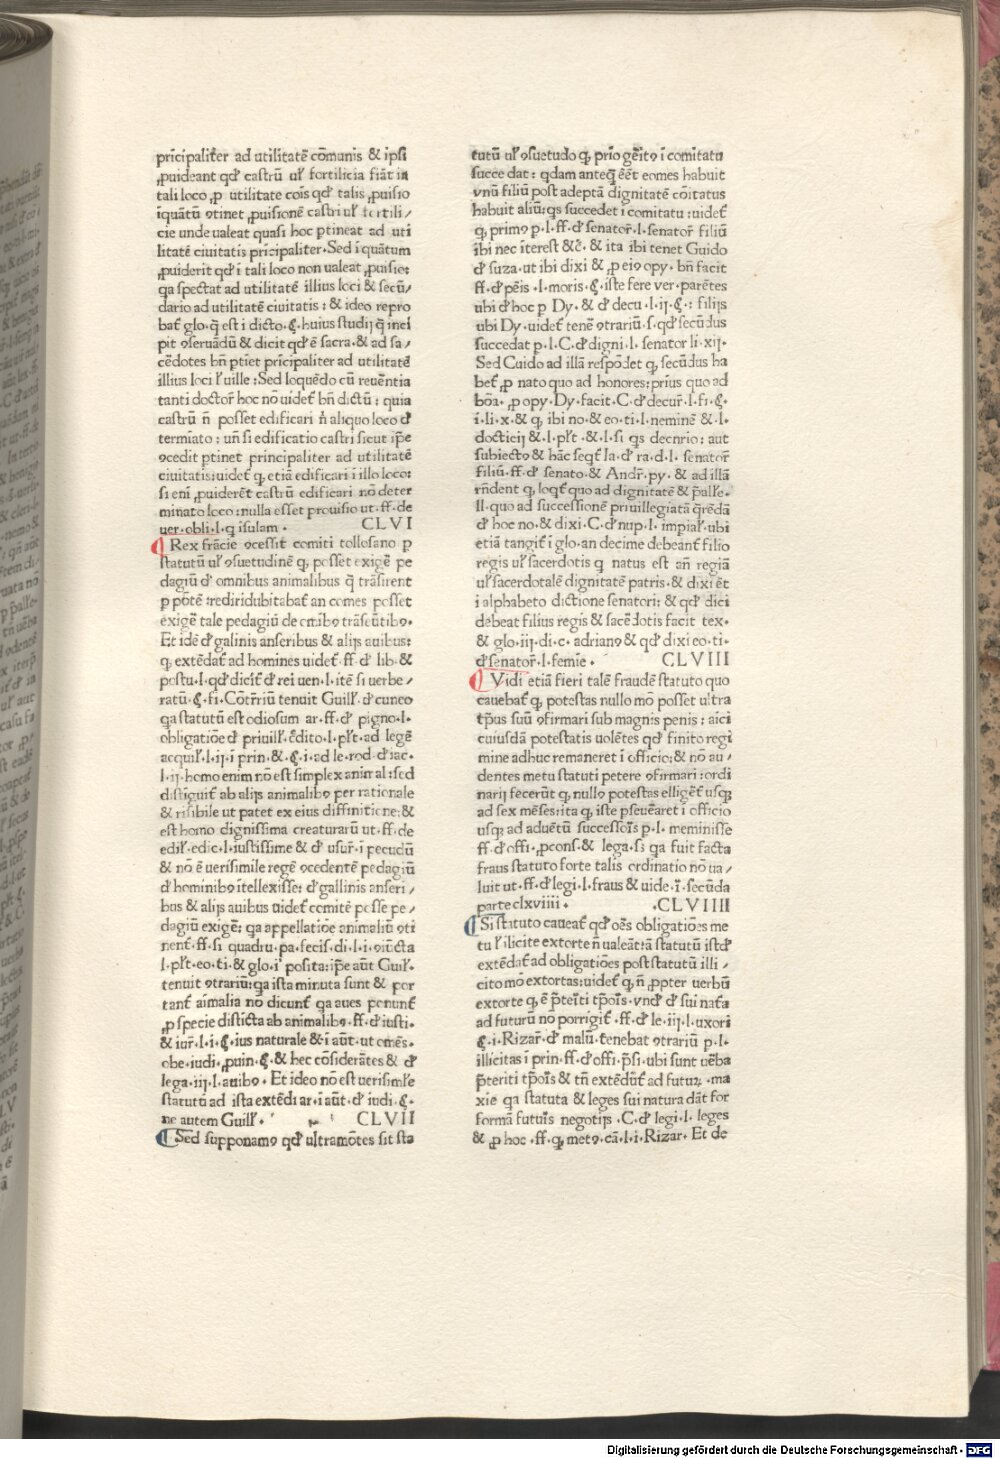 pricipalit̃er ad utilitatẽ cõmunis & ipsi
ꝓuideant qđ castrũ ul̃ fortilicia fiãt in
tali loco ꝓ utilitate cois qđ talis ꝓuisio
iquãtũ ꝯtinet ꝓuisionẽ castri ul̃ fortili/
cie unde ualeat quasi hoc ptineat ad uti
litatẽ ciuitatis pricipaliter·Sed i quãtum
ꝓuiderit qđ i tali loco non ualeat ꝓuisio:
qa spectat ad utilitatẽ illius loci & secũ/
dario ad utilitatẽ ciuitatis : & ideo repro
bat̃ glo·q̃ est i dicto·§·huius studij q̃ inci
pit ꝯseruãdũ & dicit qđ ẽ sacra·& ad sa/
cẽdotes bñ ptiet pricipaliter ad utilitatẽ
illius loci l̃ uille :Sed loquẽdo cũ reuẽntia
tanti doctor̃ hoc nõ uidet̃ bñ dictũ : quia
castrũ ñ posset edificari ñ aliquo loco đ
termiato : uñ si edificatio castri sicut ip̃e
ꝯcedit ptinet principaliter ad utilitatẽ
ciuitatis:uidet̃ q, etiã edificari i illo loco:
si eni ꝓuiderẽt castrũ edificari nõ deter
minato loco:nulla esset prouisio ut·ff·de
uer·obli·l·q isulam· CLVI
Rex frãcie ꝯcessit comiti tollosano p
statutũ ul̃ ꝯsuetudinẽ q, posset exigẽ pe
dagiũ đ omnibus animalibus q̃ trãsirent
p põtẽ :rediridubitabat̃ an comes posset
exigẽ tale pedagiũ de oĩbꝯ trãseũtibꝯ·
Et idẽ đ galinis anseribus & alijs auibus:
q, extẽdat̃ ad homines uidet̃·ff·đ lib·&
postu·l·qđ dicit̃ đ rei uen·l·itẽ si uerbe·
ratũ·§·fi·Cõtr̃riũ tenuit Guill̃·đ cuneo
qa statutũ est odiosum ar·ff·đ pigno·l·
obligatiõe đ priuill̃·c̃dito·l·pl̃t·ad legẽ
acquil̃·l·ij·i prin·&·§·i·ad le·rod·đ iac·
l·ij·homo enim nõ est simplex animal:sed
distiguit̃ ab alijs animalibꝯ per rationale
& risibile ut patet ex eius diffinitione:&
est homo dignissima creaturarũ ut·ff·de
edil̃·edic·l·iustissime & đ usur̃·i pecudũ
& nõ ẽ uerisimile regẽ ꝯcedentẽ pedagiũ
đ hominibꝯ itellexisse: đ gallinis anseri/
bus & alijs auibus uidet̃ comitẽ posse pe/
dagiũ exigẽ: qa appellatiõe animaliũ ꝯti
nent̃·ff·si quadru·pa·fecis̃·di·l·i·ꝯiũcta
l·pl̃t·eo·ti·& glo·i posita:ip̃e aũt Guil̃·
tenuit ꝯtrariũ:qa ista minuta sunt & por
tant̃ aimalia nõ dicunt̃ qa aues ponunt̃
ꝓ specie disticta ab animalibꝯ·ff·đ iusti·
& iur̃·l·i·§·ius naturale &·i aũt·ut omẽs·
obe·iudi·ꝓuin·§·& hec cõsiderãtes & đ
lega·iij·l·auibꝯ· Et ideo nõ est uerisimĩle
statutũ ad ista extẽdi ar·i aũt·đ iudi·§·
ne autem Guill̃· CLVII
Sed supponamꝯ qđ ultramõtes sit sta
tutũ ul̃ ꝯsuetudo q, prio gẽitꝯ i comitatu
succe dat : qdam anteq̃ ẽẽt comes habuit
vnũ filiũ post adeptã dignitatẽ cõitatus
habuit aliũ:qs succedet i comitatu :uidet̃
q, primꝯ p·l·ff·đ senator̃·l·senator̃ filiũ
ibi nec interest &c̃·& ita ibi tenet Guido
đ suza·ut ibi dixi & ꝓ eiꝯ opy·bñ facit
ff·đ pẽis·l·moris·§·iste fere ver·parẽtes
ubi đ hoc p Dy·& đ decu·l·ij·§·: filijs
ubi Dy·uidet̃ tenẽ ꝯtrariũ·s·qđ secũdus
succedat p·l·C·đ digni·l·senator li·xij·
Sed Guido ad illã respõdet q, secũdus ha
bet̃ ꝓ nato quo ad honores:prius quo ad
bõa·ꝓ opy·Dy·facit·C·đ decur̃·l·fi·§·
i·li·x·& q, ibi no·& eo·ti·l·neminẽ &·l·
docticij &·l·pl̃t·&·l·si qs decurio: aut
subiecto & hãc seqt̃·la·đ ra·d·l·senator̃
filiũ·ff·đ senato·& Andr̃·py·& ad illã
rñdent q, loqt̃ quo ad dignitatẽ & p̃all̃e·
ll·quo ad successionẽ priuillegiatã q̃rẽdã
đ hoc no·& dixi·C·đ nup·l·impial̃·ubi
etiã tangit̃ i glo·an decime debeant̃ filio
regis ul̃ sacerdotis q natus est añ regiã
ul̃ sacerdotalẽ dignitatẽ patris·& dixi ẽt
i alphabeto dictione senatori: & qđ dici
debeat filius regis & sacẽdotis facit tex·
& glo·iij·di·c·adrianꝯ & qđ dixi eo·ti·
đ senator̃·l·femie· CLVIII
Vidi etiã fieri talẽ fraudẽ statuto quo
cauebat̃ q, potestas nullo mõ posset ultra
tp̃us suũ ꝯfirmari sub magnis penis : aici
cuiusdã potestatis uolẽtes qđ finito regi
mine adhuc remaneret i officio: & nõ au/
dentes metu statuti petere ꝯfirmari :ordi
narij fecerũt q, nullꝯ potestas elliget̃ usq;
ad sex mẽses:ita q, iste pseuẽaret i officio
usq; ad aduẽtũ successoĩs p·l·meminisse
ff·đ offi·ꝓcons̃·& lega·si qa fuit facta
fraus statuto forte talis ordinatio nõ ua/
luit ut·ff·đ legi·l·fraus & uide·ĩ·secũda
parte clxviiii· ·CLVIIII
Si statuto caueat̃ qđ oẽs obligatiões me
tu l̃ ilicite extorte ñ ualeãt:ã statutũ istđ
extẽdat̃ ad obligatiões post statutũ illi/
cito mõ extortas:uidet̃ q, ñ ꝓpter uerbũ
extorte q, ẽ p̃teĩti tp̃ois·vnđ đ sui nat̃a
ad futurũ nõ porrigit̃·ff·đ le·iij·l·uxori
§·i·Rizar̃·đ malũ·tenebat ꝯtrariũ p·l·
illicitas i prin·ff·đ offi·p̃si·ubi sunt uẽba
p̃teriti tp̃ois & tñ extẽdũt̃ ad futuꝝ·ma
xie qa statuta & leges sui natura dãt for
formã futuĩs negotijs·C·đ legi·l·leges
& ꝓ hoc·ff·q, metꝯ·cã·l·i·Rizar· Et de
Digitalisierung gefördert durch die Deutsche Forschungsgemeinschaft - DFG